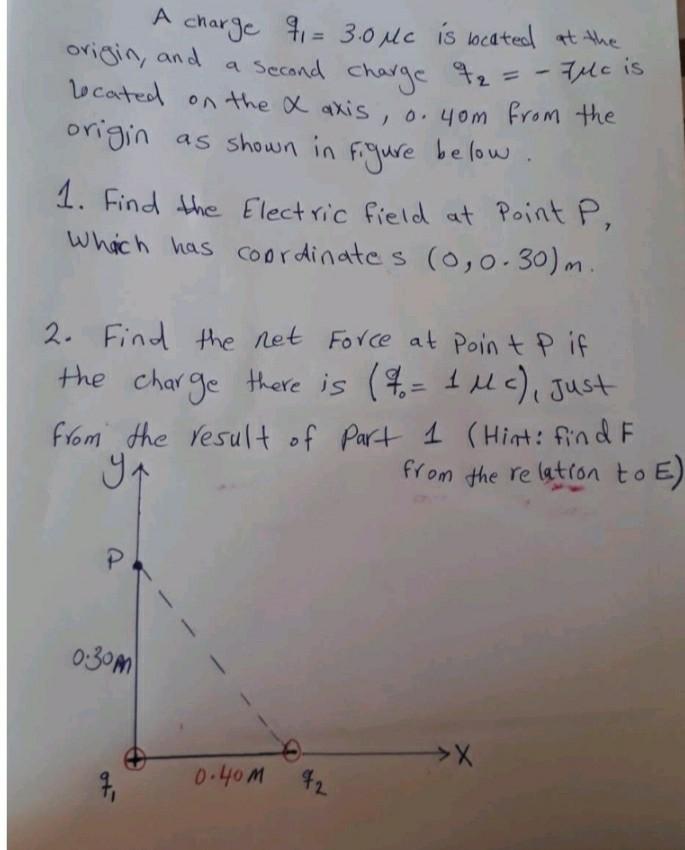 A charge q₁ = 3.0 Mc is located at the
origin, and a second charge q₂ = - 7Mc is
located on the X axis, 0.40m from the
origin as shown in figure below.
1. Find the Electric field at Point P,
Which has coordinates (0,0.30)m.
2. Find the net Force at Point P if
the charge there is (q₀= 1 Mc), just
from the result of Part 1 (Hint: find F
from the relation to E)
y
P
0.30m
+
-
X
q₁
0.40M
q₂